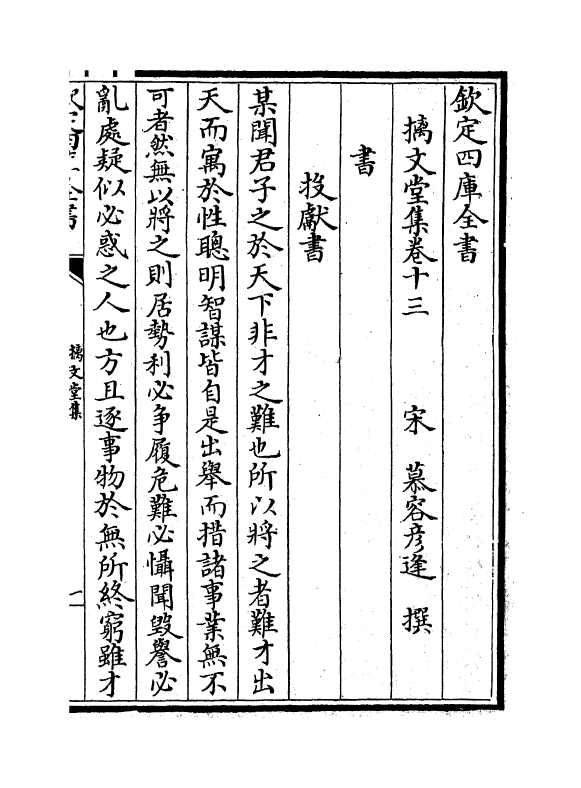 欽定四庫全書
摛文堂集卷十三 宋 慕容彦逢 撰
書
投獻書
某聞君子之於天下非才之難也所以將之者難才出
天而寓於性聰明智謀皆自是出舉而措諸事業無不
可者然無以將之則居勢利必争履危難必懾聞毁譽必
亂處疑似必惑之人也方且逐事物於無所終窮雖才
摛文堂集
一